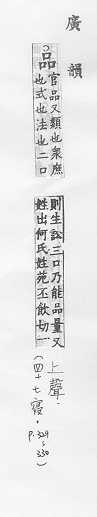 廣韻
品官品又類也衆庶
也式也法也二口
則生訟三口乃能品量又
姓出何氏姓苑丕飲切一
上聲.
(四十七寑.
P.329~330)